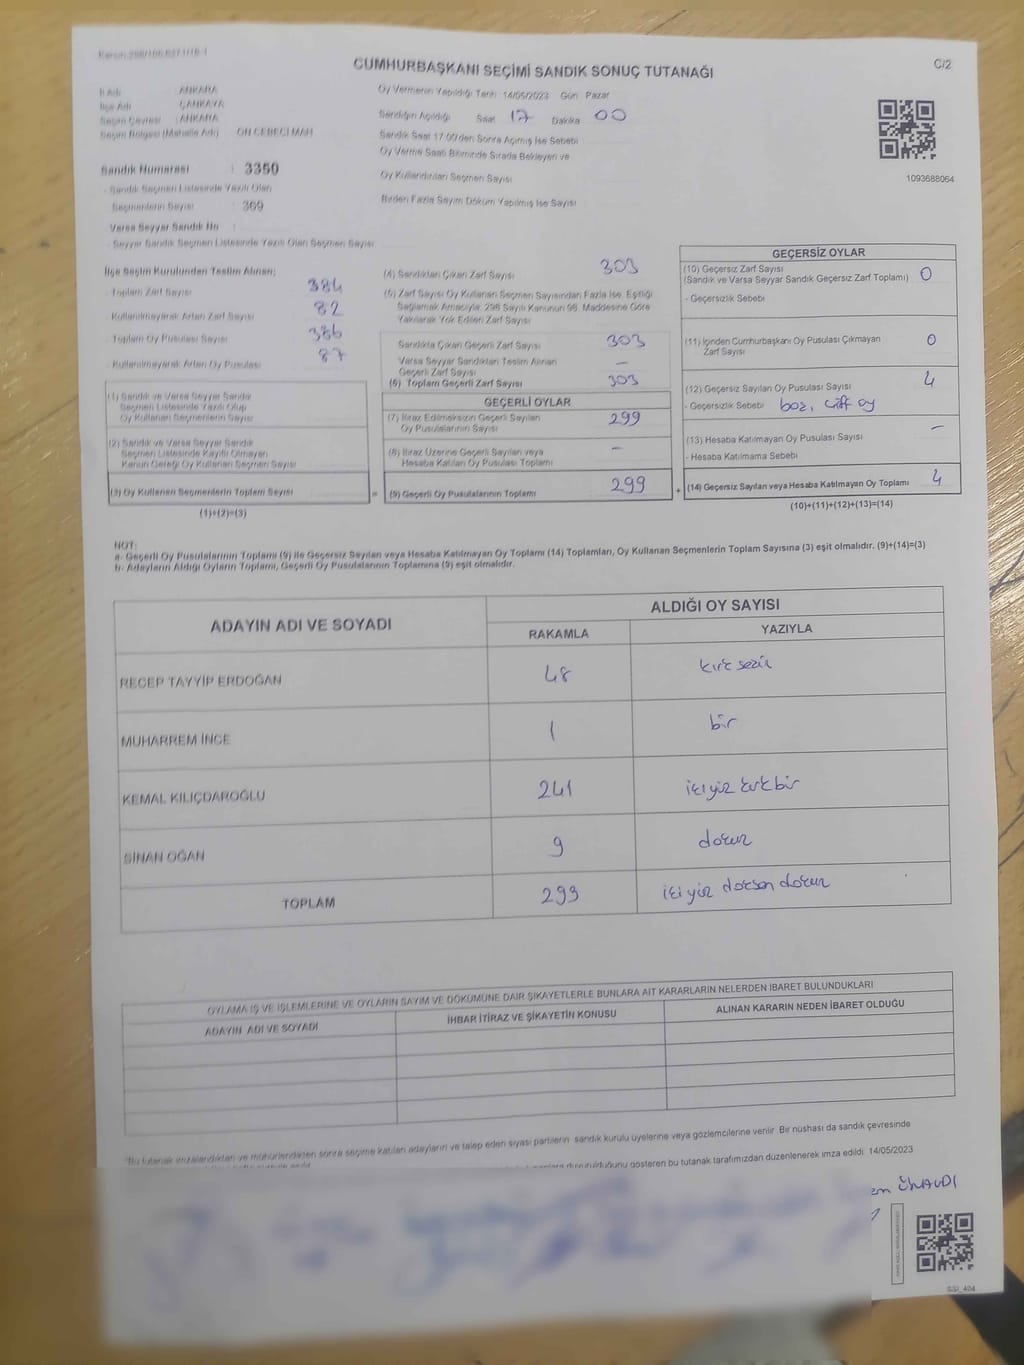 C/2
CUMHURBAŞKANI SEÇİMİ SANDIK SONUÇ TUTANAĞI
İl Adı : ANKARA
İlçe Adı : ÇANKAYA
Seçim Çevresi : ANKARA
Seçim Bölgesi (Mahalle Adı) : ÖN CEBECİ MAH
Sandık Numarası : 3350
- Sandık Seçmen Listesinde Yazılı Olan
Seçmenlerin Sayısı : 369
Varsa Seyyar Sandık No :
- Seyyar Sandık Seçmen Listesinde Yazılı Olan Seçmen Sayısı
Oy Vermenin Yapıldığı Tarih 14/05/2023 Gün Pazar
Sandığın Açıldığı Saat 17 Dakika 00
Sandık Saat 17:00'den Sonra Açılmış İse Sebebi
Oy Verme Saati Bitiminde Sırada Bekleyen ve
Oy Kullandırılan Seçmen Sayısı
Birden Fazla Sayım Döküm Yapılmış İse Sayısı
1093688064
İlçe Seçim Kurulundan Teslim Alınan;
- Toplam Zarf Sayısı 384
- Kullanılmayarak Artan Zarf Sayısı 82
- Toplam Oy Pusulası Sayısı 386
- Kullanılmayarak Artan Oy Pusulası 87
(1) Sandık ve Varsa Seyyar Sandık
Seçmen Listesinde Yazılı Olup
Oy Kullanan Seçmenlerin Sayısı
(2) Sandık ve Varsa Seyyar Sandık
Seçmen Listesinde Kayıtlı Olmayan
Kanun Gereği Oy Kullanan Seçmen Sayısı
(3) Oy Kullanan Seçmenlerin Toplam Sayısı =
(1)+(2)=(3)
(4) Sandıktan Çıkan Zarf Sayısı 303
(5) Zarf Sayısı Oy Kullanan Seçmen Sayısından Fazla İse, Eşitliği
Sağlamak Amacıyla; 298 Sayılı Kanunun 98. Maddesine Göre
Yakılarak Yok Edilen Zarf Sayısı
Sandıkta Çıkan Geçerli Zarf Sayısı 303
Varsa Seyyar Sandıktan Teslim Alınan
Geçerli Zarf Sayısı –
(6) Toplam Geçerli Zarf Sayısı 303
GEÇERLİ OYLAR
(7) İtiraz Edilmeksizin Geçerli Sayılan
Oy Pusulalarının Sayısı 299
(8) İtiraz Üzerine Geçerli Sayılan veya
Hesaba Katılan Oy Pusulası Toplamı –
(9) Geçerli Oy Pusulalarının Toplamı 299 +
GEÇERSİZ OYLAR
(10) Geçersiz Zarf Sayısı
(Sandık ve Varsa Seyyar Sandık Geçersiz Zarf Toplamı) 0
- Geçersizlik Sebebi
(11) İçinden Cumhurbaşkanı Oy Pusulası Çıkmayan
Zarf Sayısı 0
(12) Geçersiz Sayılan Oy Pusulası Sayısı 4
- Geçersizlik Sebebi boş, çift oy
(13) Hesaba Katılmayan Oy Pusulası Sayısı –
- Hesaba Katılmama Sebebi
(14) Geçersiz Sayılan veya Hesaba Katılmayan Oy Toplamı 4
(10)+(11)+(12)+(13)=(14)
NOT:
a- Geçerli Oy Pusulalarının Toplamı (9) ile Geçersiz Sayılan veya Hesaba Katılmayan Oy Toplamı (14) Toplamları, Oy Kullanan Seçmenlerin Toplam Sayısına (3) eşit olmalıdır. (9)+(14)=(3)
b- Adayların Aldığı Oyların Toplamı, Geçerli Oy Pusulalarının Toplamına (9) eşit olmalıdır.
ADAYIN ADI VE SOYADI ALDIĞI OY SAYISI
RAKAMLA YAZIYLA
RECEP TAYYİP ERDOĞAN 48 kırk sekiz
MUHARREM İNCE 1 bir
KEMAL KILIÇDAROĞLU 241 ikiyüz kırkbir
SİNAN OĞAN 9 dokuz
TOPLAM 299 ikiyüz doksan dokuz
OYLAMA İŞ VE İŞLEMLERİNE VE OYLARIN SAYIM VE DÖKÜMÜNE DAİR ŞİKAYETLERLE BUNLARA AİT KARARLARIN NELERDEN İBARET BULUNDUKLARI
ADAYIN ADI VE SOYADI İHBAR İTİRAZ VE ŞİKAYETİN KONUSU ALINAN KARARIN NEDEN İBARET OLDUĞU
*Bu tutanak imzalandıktan ve mühürlendikten sonra seçime katılan adayların ve talep eden siyasi partilerin sandık kurulu üyelerine veya gözlemcilerine verilir. Bir nüshası da sandık çevresinde
duyurulduğunu gösteren bu tutanak tarafımızdan düzenlenerek imza edildi. 14/05/2023